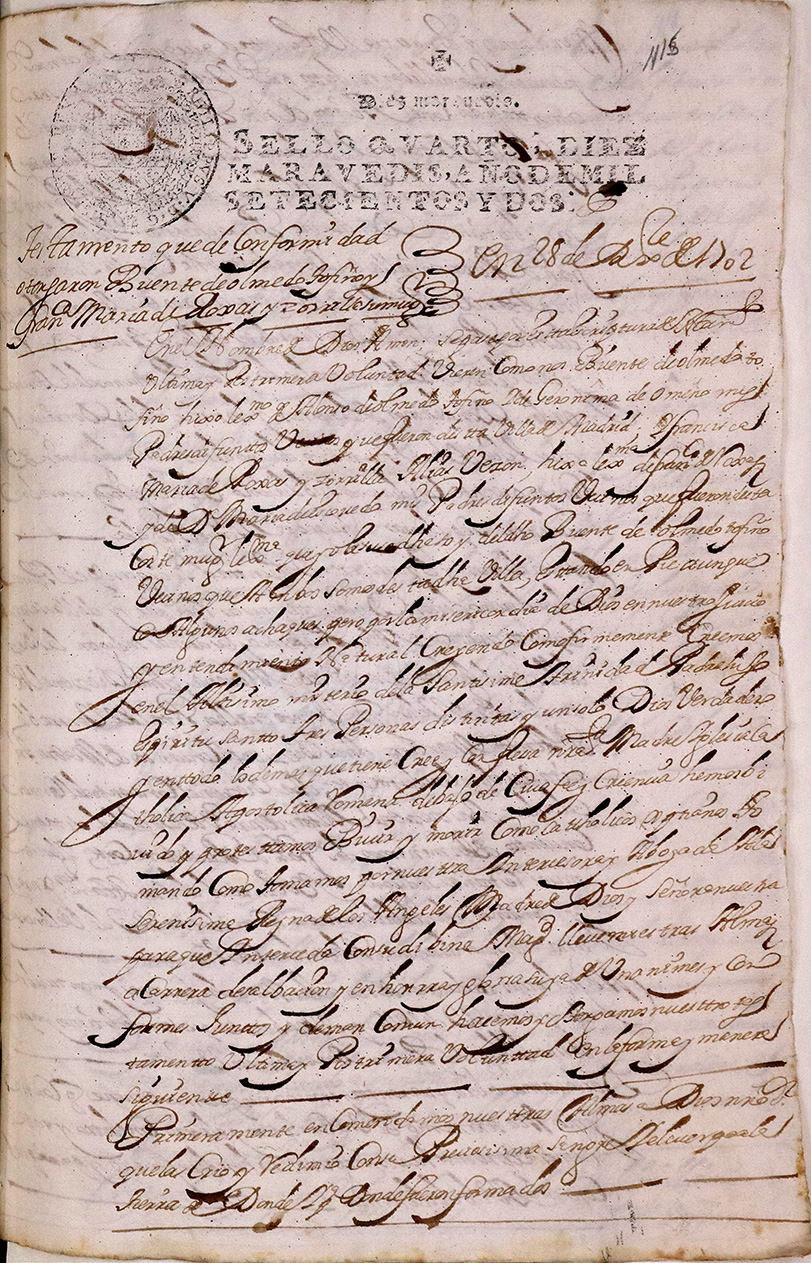 118
Diez marauedis.
SELLO QVARTO, DIEZ
MARAVEDIS, AÑO DE MIL
SETECIENTOS Y DOS.
Testamento que de Conformidad
otorgaron Biuente de olmedo tofiño y
Franca Maria de Roxas y Zorralla su muger
En 28 de Re de 1702
En el Nombre de Dios Amen. Sepase por esta escritura de
Ultima y Postrimera Voluntad Vieren Como nos Biuente de olmedo to
fiño hixo lexmo de Alonso de olmedo tofiño y de Geronima de omeño mis
Padres difuntos Vezos que fueron desta Villa de Madrid. y francisca
Maria de Roxas y Zorralla Alias Vezon, hixa lexma de
y de Da Maria de mis Padres difuntos Vezinos que fueron desta
Corte muger lexma que soy del susodho to y del dho Biuente de olmedo tofiño
Vezinos que Ambos somos desta dha Villa, Estando en Pie aunque
Con Algunos achaques pero por la misericordia de Dios en nuestro Juicio
y entendimiento Natural Creyendo Como firmemente Creemos
en el Altisimo misterio de la Santisima Trinidad Padre hijo
espiritu santo tres Personas destintas y un solo Dios Verdadero
y en todo lo demas que tiene Cree y Confiesa nra Sta Madre Iglesia Ca
tholica Apostolica Romana debajo de Cuia fe y Creencia hemos vi
uido y protestamos Biuir y morir Como Catholicos Cristianos to
mando Como tomamos por nuestra Intercesora y Abogada Ala
serenisima Reyna de los Angeles Madre de Dios y Señora nuestra
para que Interceda Con su dibina Magd lleue nuestras Almas
a Carrera de salbacion y en honrra y gloria suya Unanimes y Con
formes Juntos y deman Comun hacemos y otorgamos nuestro tes
tamento Ultima y Postrimera Voluntad en la forma y manera
siguiente
Primeramente encomendamos nuestras Almas a Dios nro Sr
que las Crio y redimio Con su Preciosisima sangre y el cuerpo ala
tierra de Donde fueron formados